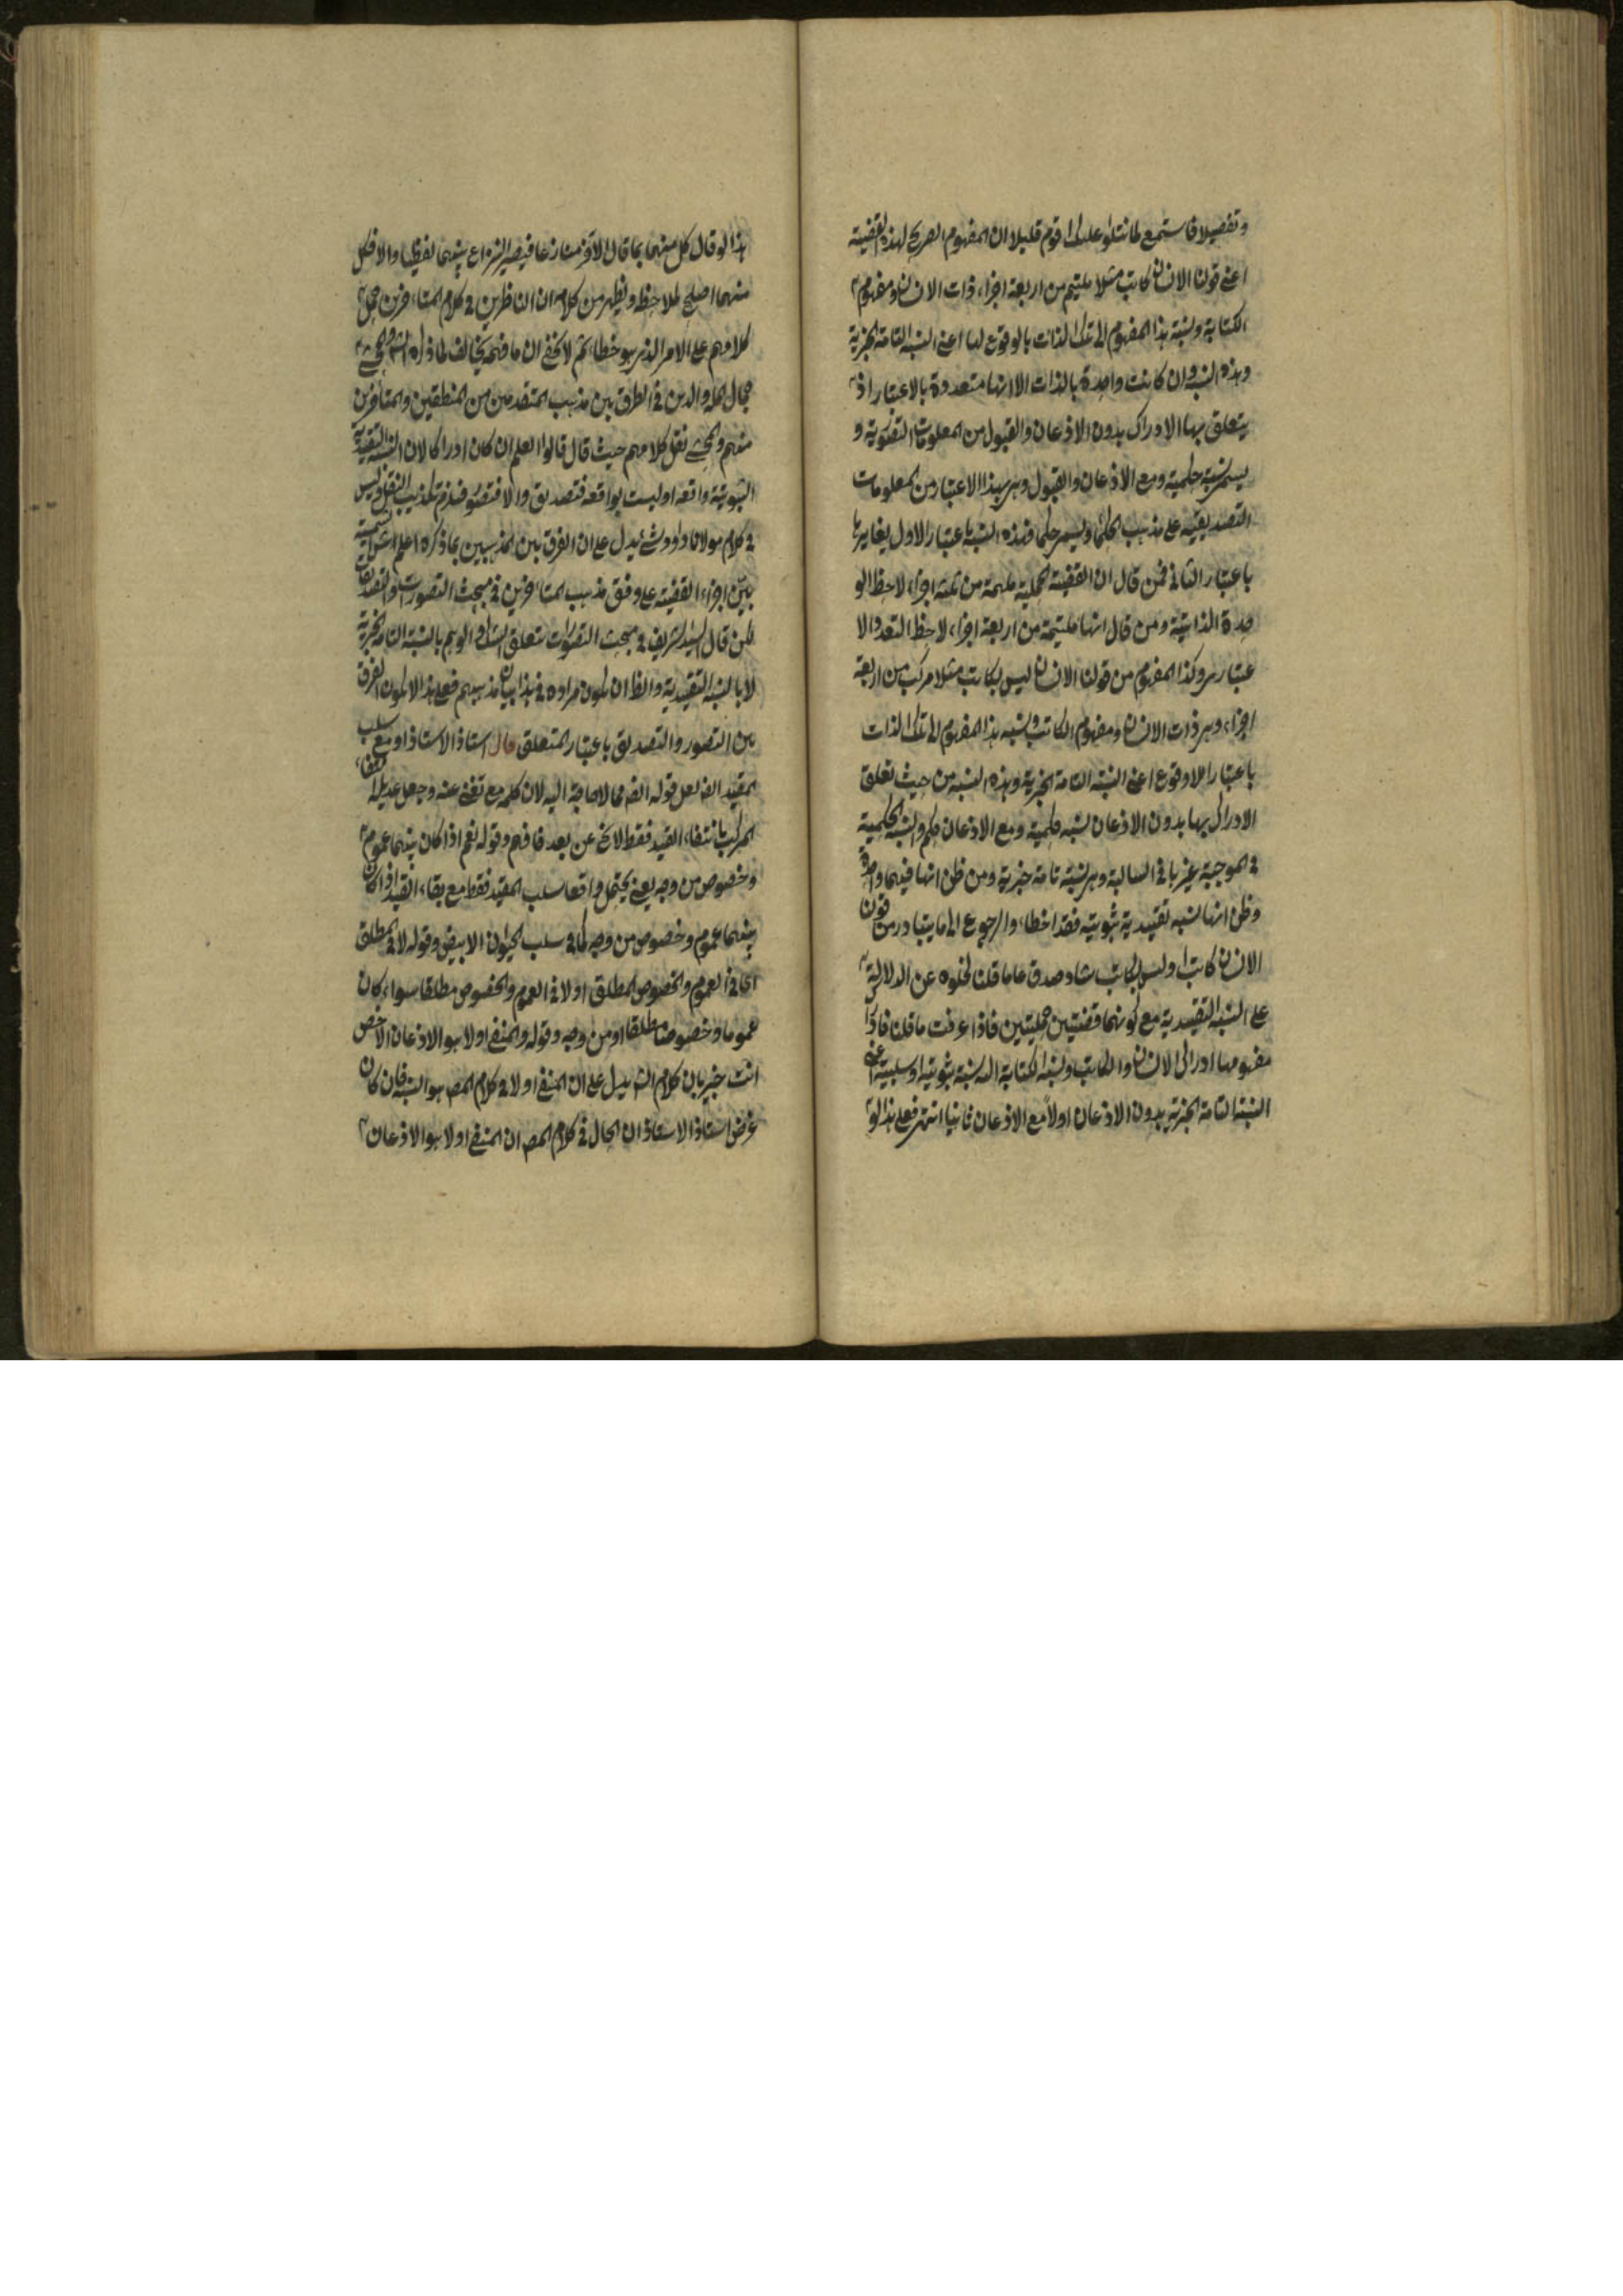 وتفصيلا فاستمع لما نتلو عليك اقوم قليلا ان المفهوم الصريح لهذه القضية
اعنى قولنا الانسان كاتب مثلا ملتئم من اربعة اجزاء ذات الانسان ومفهوم
الكتابة ونسبة هذا المفهوم الى تلك الذات بالوقوع لها اعنى النسبة التامة الخبرية
وهذه النسبة وان كانت واحدة بالذات الا انها متعددة بالاعتبار اذ
يتعلق بها الادراك بدون الاذعان والقبول من المعلومات التصورية و
يسمى نسبة حكمية ومع الاذعان والقبول وهى بهذا الاعتبار من المعلومات
التصديقية على مذهب الحكماء ويسمى حكما فهذه النسبة باعتبار الاول يغايرها
باعتبار الثانى فمن قال ان القضية الحملية ملتئمة من ثلثة اجزاء لاحظ الو
حدة الذاتية ومن قال انها ملتئمة من اربعة اجزاء لاحظ التعدد الا
عتبارى وكذا المفهوم من قولنا الانسان ليس بكاتب مثلا مركب من اربعة
اجزاء وهى ذات الانسان ومفهوم الكاتب ونسبة هذا المفهوم الى تلك الذات
باعتبار اللاوقوع اعنى النسبة التامة الخبرية وهذه النسبة من حيث تعلق
الادراك بها بدون الاذعان نسبة حكمية ومع الاذعان حكم والنسبة الحكمية
فى الموجبة غيرها فى السالبة وهى نسبة تامة خبرية ومن ظن انها فيهما واحدة
وظن انها نسبة تقييدية ثبوتية فقد اخطاء والرجوع الى ما يتبادر من قولنا
الانسان كاتب او ليس بكاتب شاهد صدق على ما قلنا لخلوه عن الدلالة
على النسبة التقييدية مع كونهما قضيتين حمليتين فاذا عرفت ما قلنا فادراك
مفهومها ادراك الانسان والكاتب ونسبة الكتابة اليه نسبة ثبوتية او سلبية اعنى
النسبة التامة الخبرية بدون الاذعان اولا ومع الاذعان ثانيا انتهى فعلى هذا لو
هذا لو قال كل منهما بما قال الاخر منازعا فيصير النزاع بينهما لفظيا والا فكل
منهما اصلح لملاحظ ويظهر من كلامه ان الناظرين فى كلام المتاخرين حمل
كلامهم على الامر الذى هو خطاء ثم لا يخفى ان ما فهمه يخالف لما ذكره الش والمحشى
جمال الملة والدين فى الفرق بين مذهب المتقدمين من المنطقين والمتاخرين
منهم والمحشى نقل كلامهم حيث قال قالوا العلم ان كان ادراكا لان النسبة التقييدية
الثبوتية واقعة او ليست بواقعة فتصديق والا فتصور النقل وليس
فى كلام مولانا داود شئ يدل على ان الفرق بين المذهبين بما ذكره اعلم ان
بين اجزاء القضية على وفق مذهب المتاخرين فى مبحث التصورات والتصديقات
لكن قال السيد الشريف فى مبحث التصورات يتعلق الشك والوهم بالنسبة التامة الخبرية
لا بالنسبة التقييدية والظ ان يكون مراده فى هذا بيان مذهبهم فعلى هذا لا يكون الفرق
بين التصور والتصديق باعتبار المتعلق قال استاذ الاستاذ او مع سلب
المقيد الخ لعل قوله الخ مما لا حاجة اليه لان كلمة مع تغنى عنه وجعل عديله
المركب بانتفاء القيد فقط لا يخ عن بعد فافهم وقوله نعم اذا كان بينهما عموم
وخصوص من وجه يعنى يحتمل واقعا سلب المقيد فقط مع بقاء القيد اذا كان
بينهما عموم وخصوص من وجه كما فى سلب الحيوان الابيض وقوله لا فى المطلق
اى فى العموم والخصوص المطلق او لا فى العموم والخصوص مطلقا سواء كان
عموما وخصوصا مطلقا او من وجه وقوله والمنفى اولا هو الاذعان الاخص
انت خبير بان كلام الش يدل على ان المنفى اولا فى كلام المص هو النسبة فان كان
غرض استاذ الاستاذ ان الحال فى كلام المص ان المنفى اولا هو الاذعان